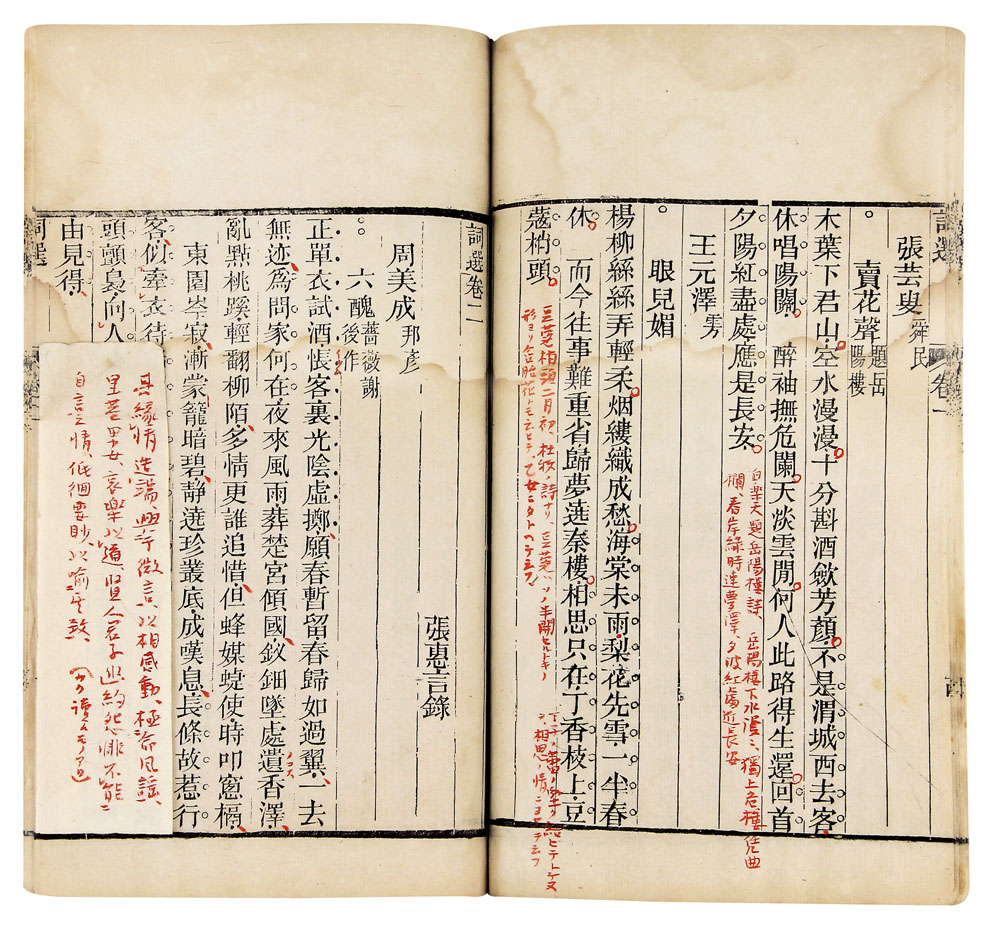 張芸叟 舜民
賣花聲 題岳陽樓
木葉下君山空水漫漫十分斟酒斂芳顏不是渭城西去客
休唱陽關　醉袖撫危闌天淡雲閒何人此路得生還回首
夕陽紅盡處應是長安
白樂天題岳陽樓詩、岳陽樓下水漫々獨上危樓凭曲
欄、春岸綠時連夢澤、夕波紅處近長安
王元澤 雱
眼兒媚
楊柳絲絲弄輕柔烟縷織成愁海棠未雨梨花先雪一半春
休　而今往事難重省歸夢遶秦樓相思只在丁香枝上豆
蔻梢頭
詞選卷一
詞選卷二
張惠言錄
周美成 邦彥
六醜 薔薇謝後作
正單衣試酒悵客裏光陰虛擲願春暫留春歸如過翼一去
無迹爲問家何在夜來風雨葬楚宮傾國釵鈿墜處遺香澤
亂點桃蹊輕翻柳陌多情更誰追惜但蜂媒蜨使時叩窻槅
東園岑寂漸蒙籠暗碧靜遶珍叢底成嘆息長條故惹行
客似牽衣待
頭顫裊向人
由見得
詞選
其緣情造端、興于微言以相感動、極命風謠、
里巷男女、哀樂以道賢人君子幽約怨悱不能
自言情、低徊要眇、以喻其致、